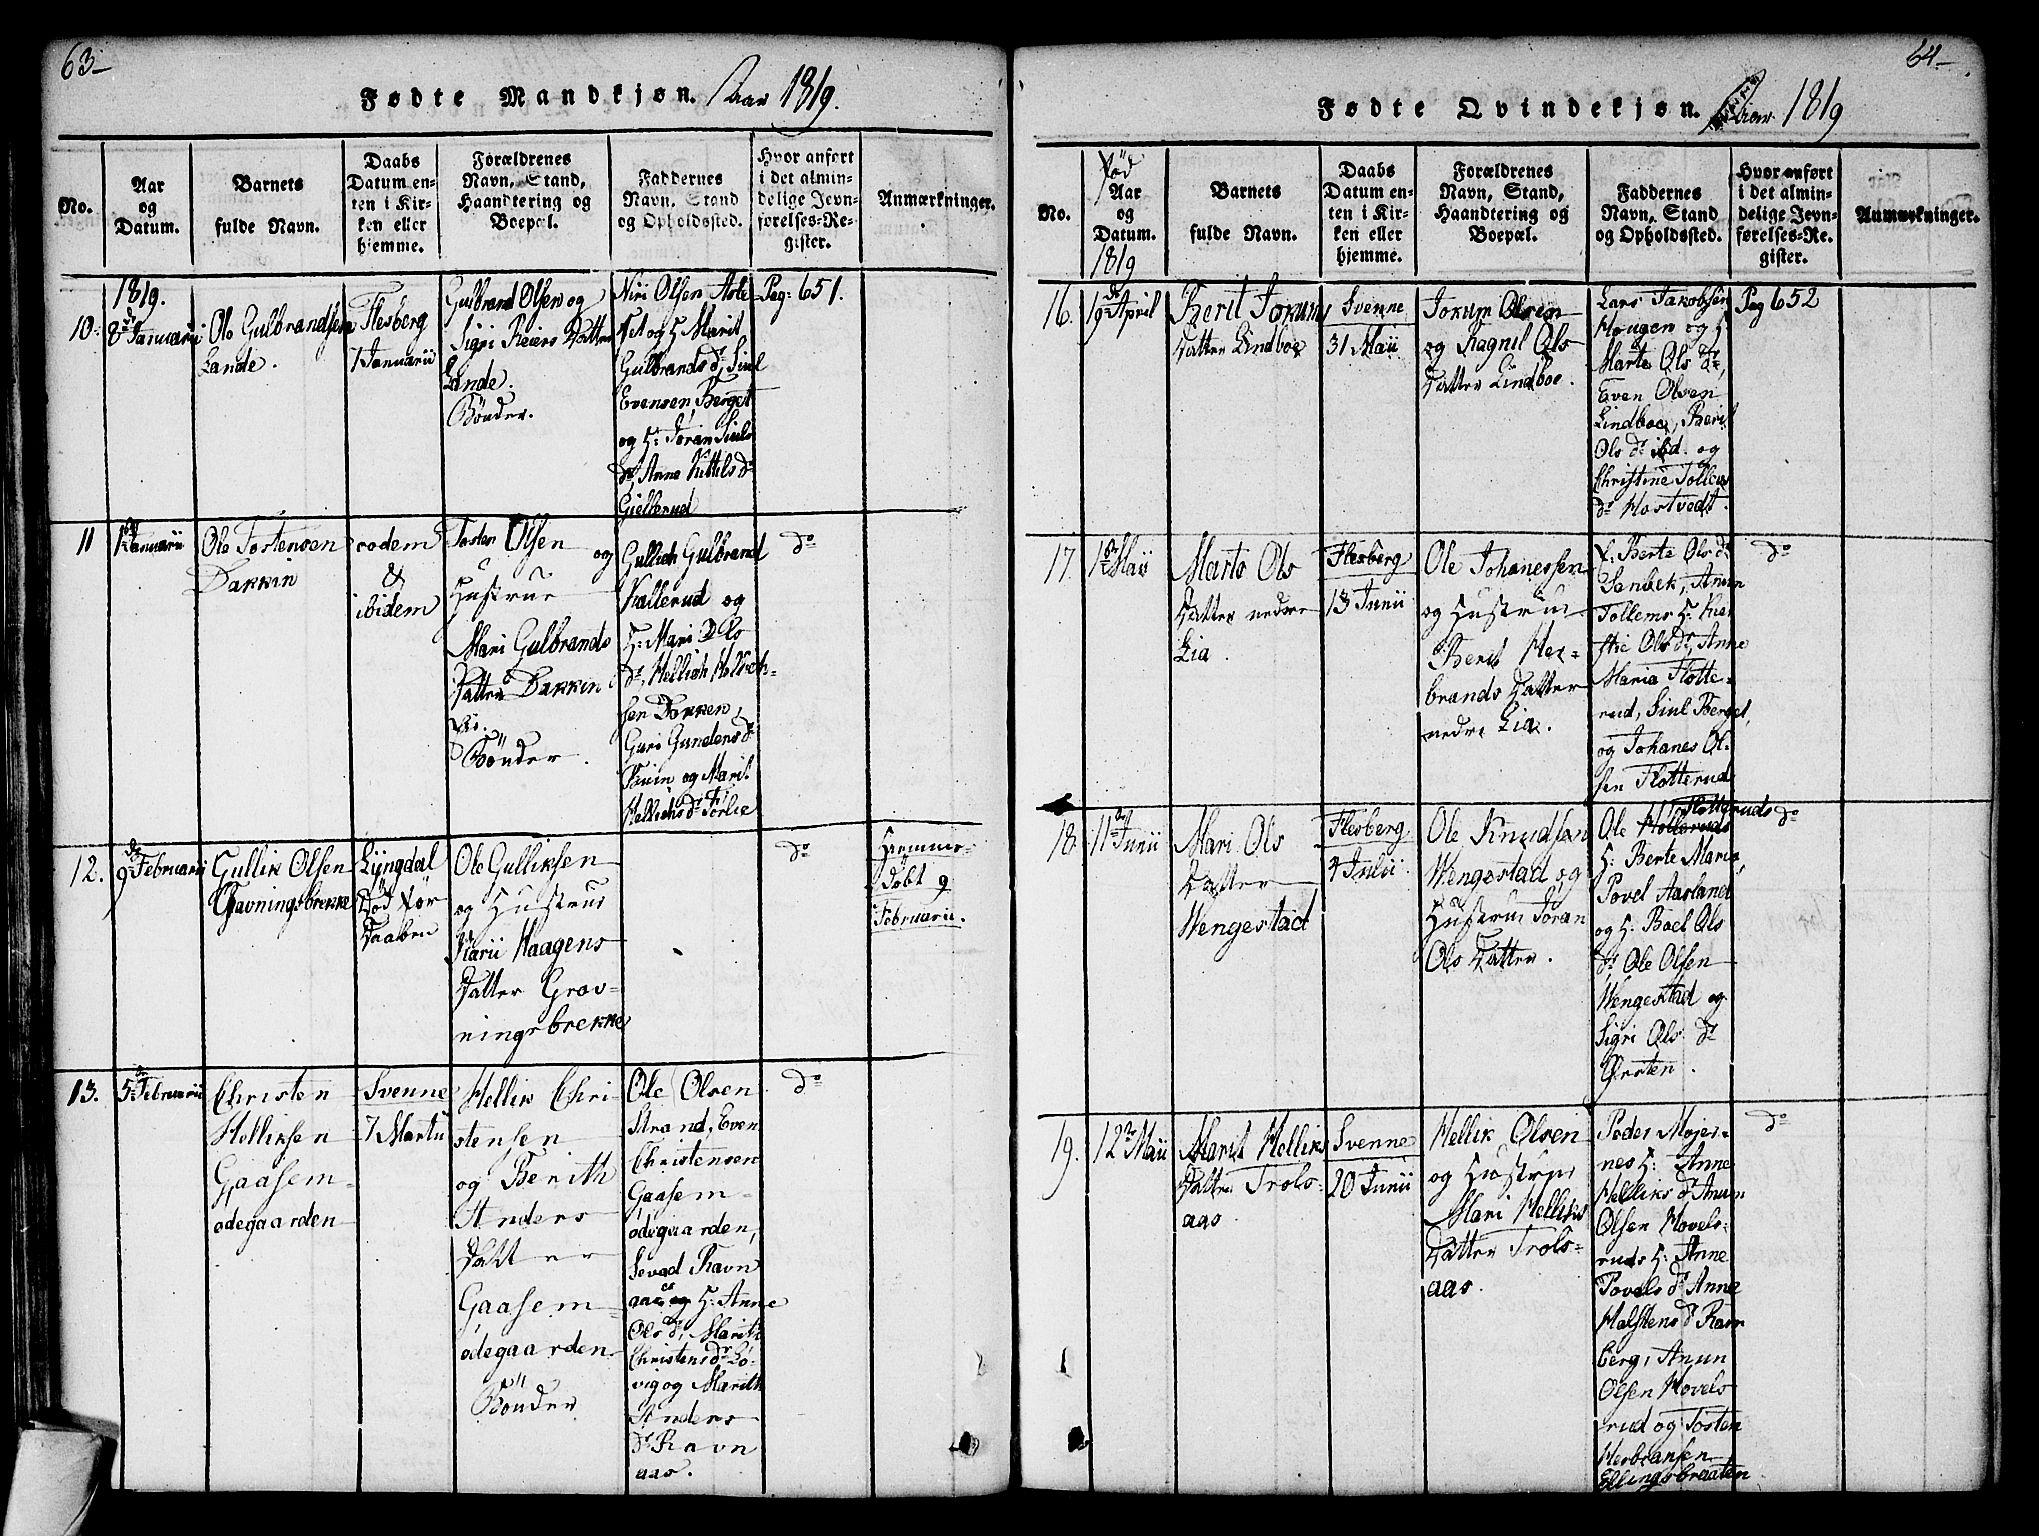 63
Fødte Mandkjøn. Aar 1819.
No.
Aar
og
Datum.
Barnets
fulde Navn.
Daabs
Datum en-
ten i Kir-
ken eller
hjemme.
Forældrenes
Navn, Stand,
Haandtering og
Boepæl.
Faddernes
Navn, Stand
og Opholdssted.
Hvor anført
i det almin-
delige Jevn-
førelses-Re-
gister.
Anmærkninger.
10.
1819.
8de Januarii
Ole Gulbrandsen
Lande.
Flesberg
7 Januarii
Gulbrand Olsen og
Sigri Reiers Datter
Lande.
Bønder.
Niri Olsen
og H. Marit
Gulbrands dr, Siul
Evensen Berget
og H: Jøran Siuls
dr, Anne Kittils dr
Gjellerud
Pag: 651.
11
Januarii
Ole Tostensen
Dakkin
eodem
&
ibidem
Tosten Olsen og
Hustrue
Mari Gulbrands
Datter Dakkin
Bønder.
Gullich Gulbrand
Kallerud og
H: Mari Ols
dr, Hellich Hellich-
sen Dokken,
Guri Gundens dr
og Marit
Hellichs dr Førlie
do
12.
9de Februarii
Gullik Olsen
Gavningsbrekke
Lyngdal
Død før
Daaben
Ole Gulliksen
og Hustrue
Karii Haagens
Datter Grav-
ningsbrekke
do
Hiemme-
døbt 9
Februarii.
13.
5te Februarii
Christen
Helliksen
Gaasem-
ødegaarden
Svenne
7 Martii
Hellik Chri-
stensen
og Berith
Anders
Datter
Gaasem-
ødegaarden
Bønder
Ole Olsen
Strand, Even
Christensen
Gaasem-
ødegaarden,
Sevad Ravn
aas og H: Anne
Ols dr, Marith
Christens dr Lø-
vig og Marith
Anders
dr Ravn
aas.
do
64
Fødte Qvindekjøn. Aar 1819
No.
Fød
Aar
og
Datum.
1819
Barnets
fulde Navn.
Daabs
Datum en-
ten i Kir-
ken eller
hjemme.
Forældrenes
Navn, Stand,
Haandtering og
Boepæl.
Faddernes
Navn, Stand
og Opholdssted.
Hvor anført
i det almin-
delige Jevn-
førelses-Re-
gister.
Anmærkninger.
16.
19de April
Berit Jokums
Datter Lindboe
Svenne
31 Maii
Jokum Olsen
og Ragnil Ols
Datter Lindboe.
Lars Jakobsen
Hougen og H.
Marte Ols dr,
Even Olsen
Lindboe, Berit
Ols dr ibd. og
Christine Tollevs
dr Hostvedt.
Pag 652
17.
1ste Maii
Marte Ols
Datter nedre
Lia.
Flesberg
13 Junii
Ole Johanessen
og Hustrue
Berit Her-
brands Datter
nedre Lia.
Berte Ols dr
Sanbek, Anun
Tollems H. Kier-
stie Ols dr, Anne
Maria Flotte-
rud, Siul Berget,
og Johanes Ol-
sen Flotterud
do
18.
11te Junii
Mari Ols
Datter
Wengestad
Flesberg
4 Julii
Ole Knudsen
Wengestad og
Hustrue Jøran
Ols Datter.
Flotteruds
Ole Holleruds
H. Berte Maria,
Povel Aasland
og H. Boel Ols
dr Ole Olsen
Wengestad og
Sigri Ols dr
do
19.
12te Maii
Marit Helliks
Datter Trols-
aas.
Svenne
20 Junii
Hellik Olsen
og Hustrue
Mari Helliks
Datter Trols-
aas.
Peder Mojer-
nes H: Anne
Helliks dr Anun
Olsen Hovels-
ruds H: Anne
Povels dr Anne
Halstens dr Ravn
berg, Anun
Olsen Hovels
rud og Tosten
Herbransen
Ellingsbraaten
do